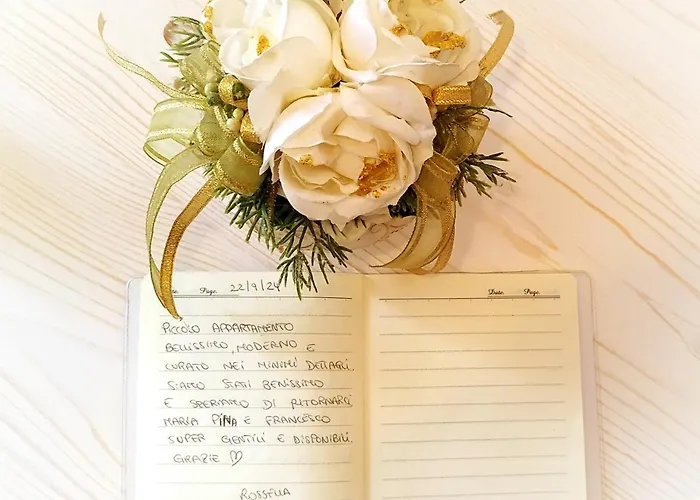 Page. 22/9/24
PICCOLO APPARTAMENTO
BELLISSIMO, MODERNO E
CURATO NEI MINIMI DETTAGLI.
SIAMO STATI BENISSIMO
E SPERIAMO DI RITORNARCI
MARIA PINA E FRANCESCO
SUPER GENTILI E DISPONIBILI.
GRAZIE ♡
ROSSELLA
Date. Page.